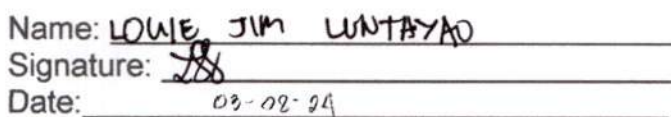 Name: LOUIE JIM LUNTAYAO
Signature:
Date: 03-02-24